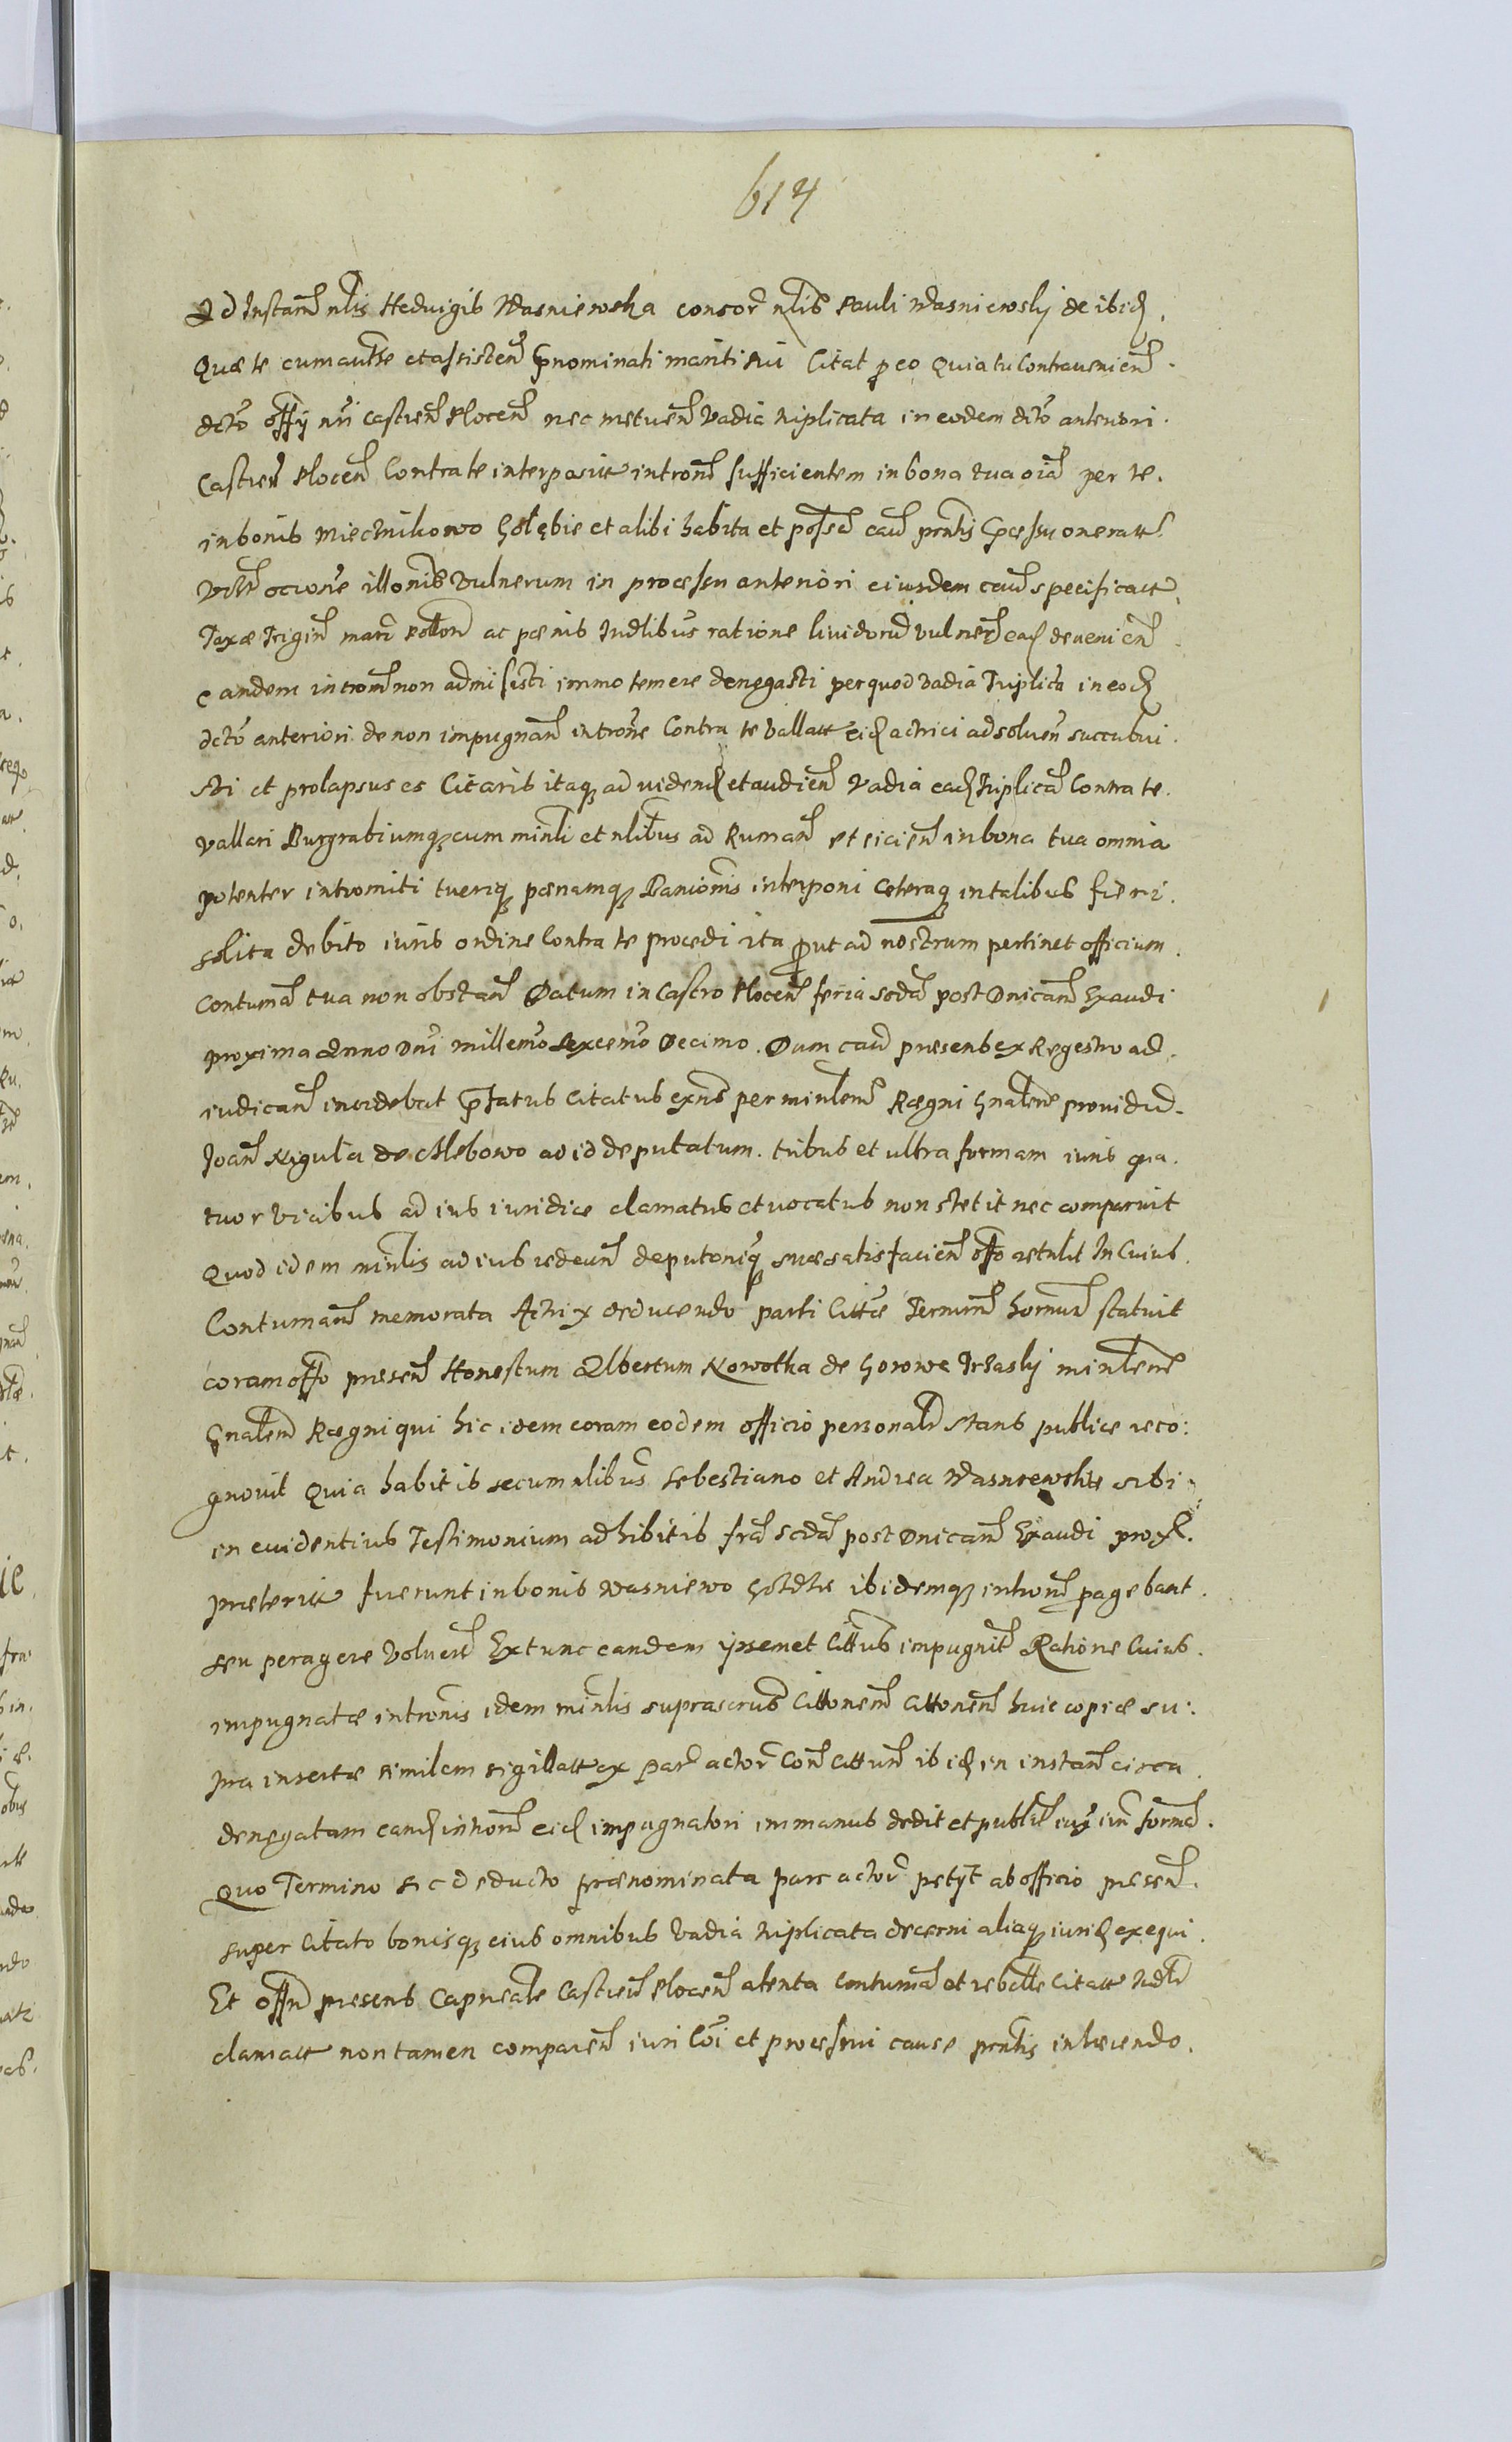 614
Ad Instantm nlis Hedvigis Wasniewska consor nlis Pauli Wasniewsky de ibid.
Quæ te cum autte et assisten prnominati mariti sui Citat p eo Quia tu Contravenien.
dcto offy nri Castren Plocen nec metuen Vadia triplicata in eodem dcto anteriori.
Castren Plocen Contra te interposita intronem sufficientem in bona tua oia per te.
in bonis Miecznikowo Gołębie et alibi habita et possess cau pntis processu oneratt
occone illonis Vulnerum in processu anteriori eiusdem cau specificatt
Taxæ Trigin marc Poloni ac pænis Indlibus ratione lividoru vulner ead devenien
eandem intronem non admisisti immo temere denegasti per quod vadia Triplicta in eod
dcto anteriori de non impugnan introne Contra te Vallatt eid actrici ad solven succubui.
sti et prolapsus es Citaris itaq ad videnđ et audien Vadia ead Triplicta Contra te.
vallari Burgrabiumq cum minli et nlibus ad Ruman et eicien in bona tua omnia
potenter intromiti tueriq pænamq Banionis interponi Ceteraq in talibus fieri.
solita debito iuris ordine Contra te procedi ita prout ad nostrum pertinet officium.
Contuma tua non obstan Datum in Castro Plocen feria scda post Dnicam Exaudi
proxima Anno Dni millemo sexcemo Decimo. Dum cau præsens ex Regestro ad.
iudican incidebat prfatus Citatus exns per minlem Rægni Gnalem providu.
Joan Nigula de Chlebowo ad id deputatum. tribus et ultra formam iuris qua.
tuor vicibus ad ius iuridice clamatus et vocatus non stetit nec comparuit
Quod idem minlis ad ius redeun deputoniq suæ satisfacien offo retulit In Cuius.
Contuman memorata Actrix deducendo parti Cittæ Terminu hornum statuit
coram offo presen Honestum Albertum Nowotka de Gorowe Trzasky minlem
Gnalem Rægni qui hic idem coram eodem officio personalr stans publice reco:
gnovit Quia habitis secum nlibus Sebestiano et Andrea Wasniewskis sibi
in evidentius Testimonium adhibitis fra scda post Dnicam Exaudi prox.
præteritt fuerunt in bonis Wasniewo ibidemq intronem pagebant.
seu peragere Voluert Extunc eandem ipsemet Cittus impugnit Ratione Cuius.
impugnatæ intronis idem minlis suprascrus Cittonem Cittonem huic copiæ su:
pra insertæ similem sigillatt ex par actor Con Cittum ibid in instan circa
denegatam eand intronem eid impugnatori in manus dedit et publit iux iur forma.
Quo Termino sic deducto prænominata pars actor petyt ab officio presen.
super Citato bonisq eius omnibus Vadia triplicata decerni aliaq iurid exequi.
Et offm presens Capneale Castren Plocen atenta Contuma et rebelle Citatt Iudlr
clamatt non tamen comparen iuri Coi et processui cause pntis inhærendo.